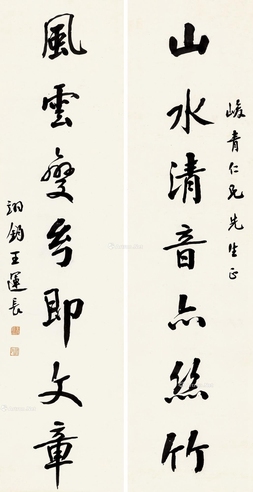 峻青仁兄先生正
山水清音亦丝竹
風雲變幻即文章
翊鈞王運長